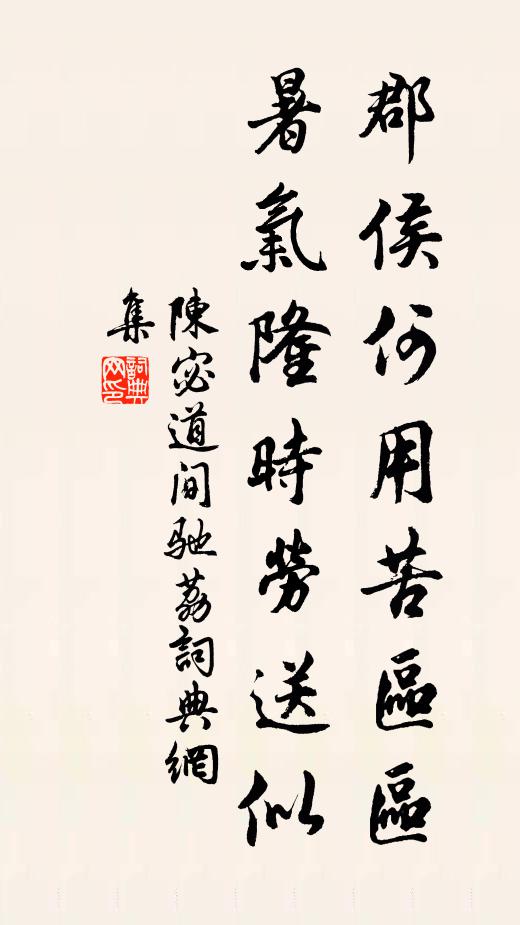 郡侯何用苦區區
暑氣隆時勞送似
陳宓道間馳荔詞典網
集
詞典
网印